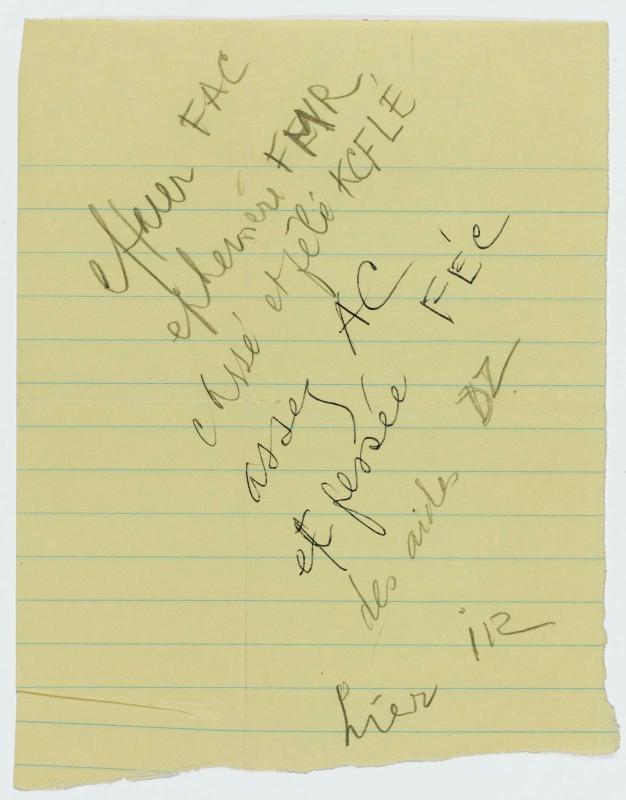 effacer FAC
éphémère FMR
cassé et fêlé KCFLÉ
assez AC
et fessée FÉC
des aides DZ
hier iR